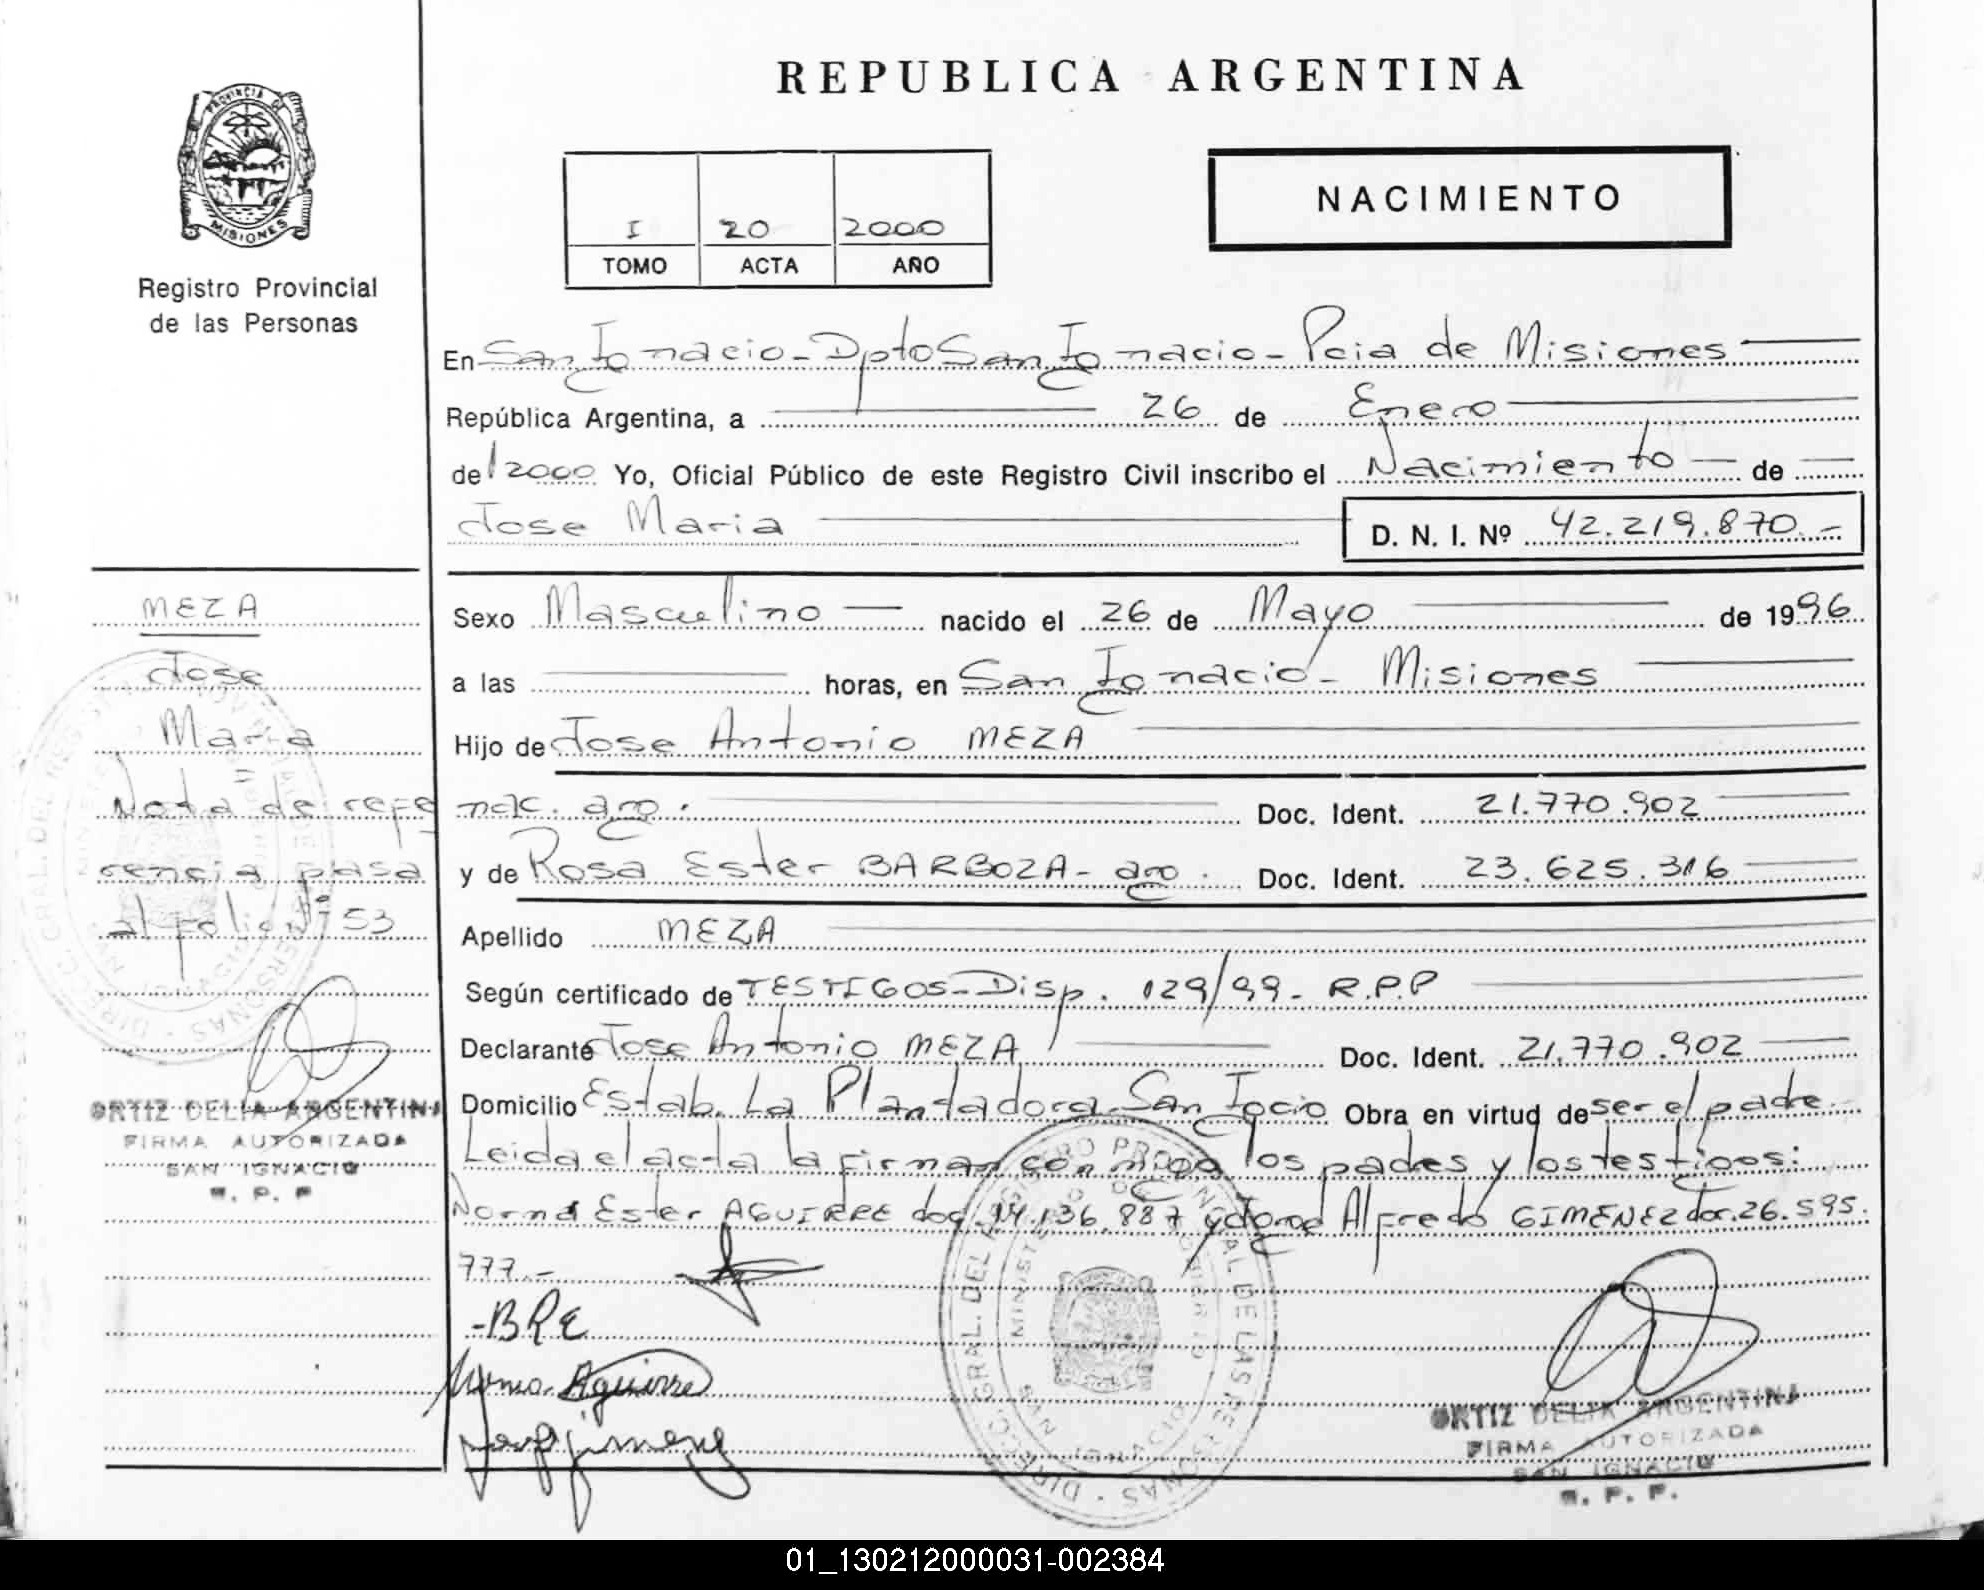 REPUBLICA ARGENTINA
PROVINCIA DE
MISIONES
Registro Provincial
de las Personas
I 20 2000
TOMO ACTA AÑO
NACIMIENTO
En San Ignacio - Dpto San Ignacio - Pcia de Misiones
República Argentina, a 26 de Enero
de 2000 Yo, Oficial Público de este Registro Civil inscribo el Nacimiento de
Jose Maria
D. N. I. Nº 42.219.870.-
Sexo Masculino nacido el 26 de Mayo de 1996
a las horas, en San Ignacio - Misiones
Hijo de Jose Antonio MEZA
nac. arg. Doc. Ident. 21.770.902
y de Rosa Ester BARBOZA - arg. Doc. Ident. 23.625.316
Apellido MEZA
Según certificado de TESTIGOS - Disp. 129/99 - R.P.P
Declarante Jose Antonio MEZA Doc. Ident. 21.770.902
Domicilio Estab. La Plantadora San Igcio Obra en virtud de ser el padre.
Leida el acta la firman con migo los pades y los testigos:
Norma Ester AGUIRRE doc. 14.136.887 y Jorge Alfredo GIMENEZ doc. 26.595.
777.-
- BRE
Norma Aguirre
MEZA
Jose
Maria
Nota de refe
rencia pasa
al folio Nº 53
ORTIZ DELIA ARGENTINA
FIRMA AUTORIZADA
SAN IGNACIO
R. P. P.
DIRECC. GRAL. DEL REGISTRO PROVINCIAL DE LAS PERSONAS
MINISTERIO DE GOBIERNO
SAN IGNACIO
ORTIZ DELIA ARGENTINA
FIRMA AUTORIZADA
SAN IGNACIO
R. P. P.
01_130212000031-002384